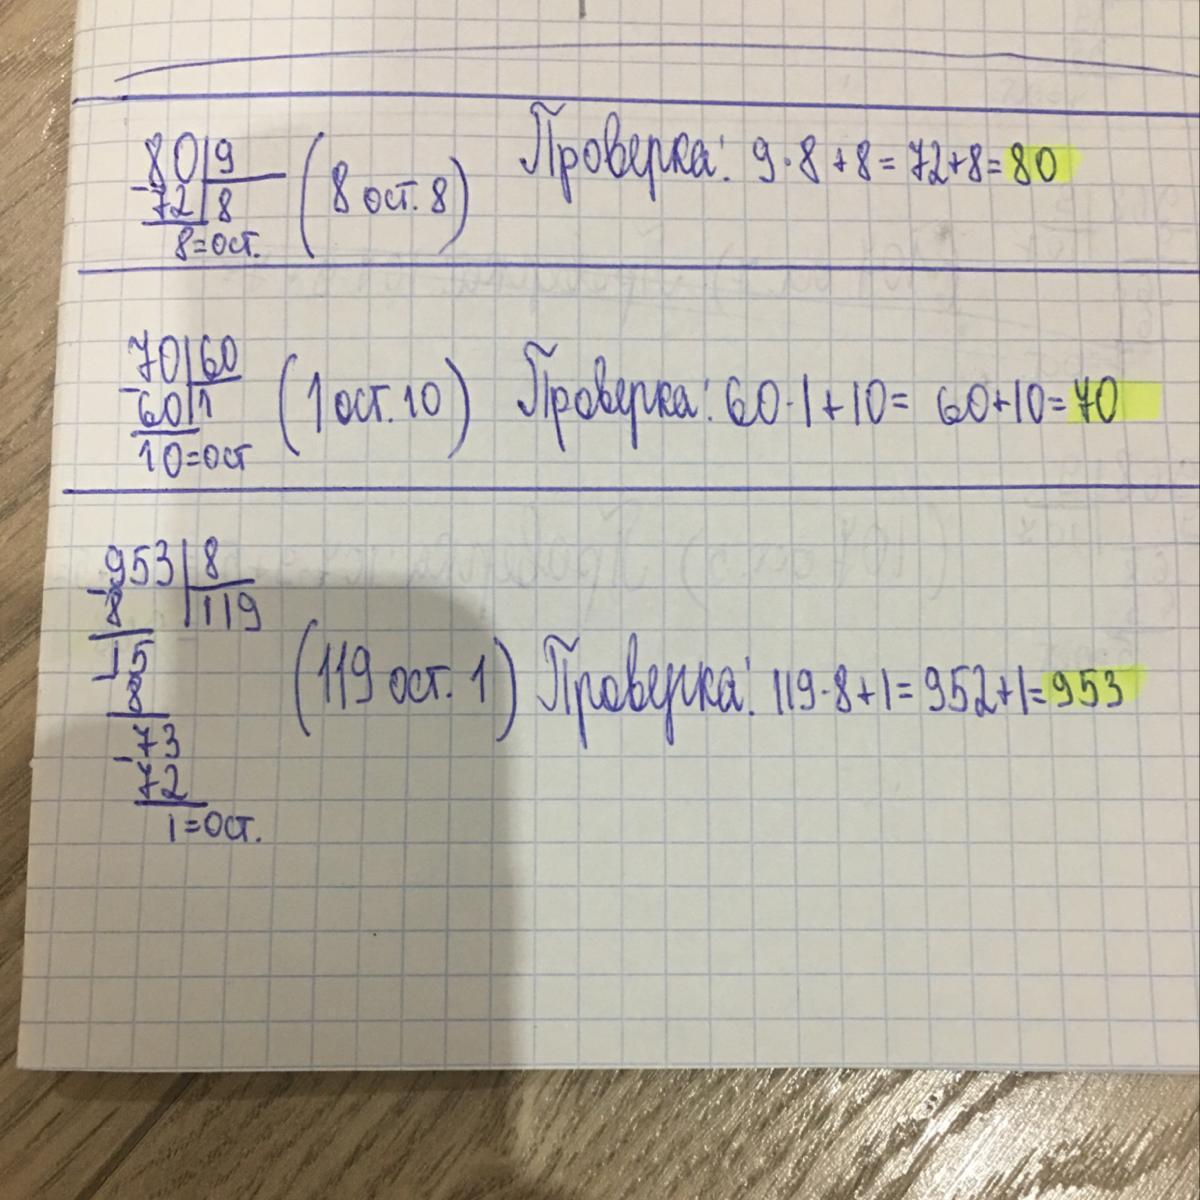 80|9
-72|8
8=ост.
(8 ост. 8)
Проверка: 9·8+8=72+8=80
70|60
-60|1
10=ост
(1 ост. 10)
Проверка: 60·1+10= 60+10=70
953|8
-8 |119
-15
8
-73
72
1=ост.
(119 ост. 1)
Проверка: 119·8+1=952+1=953